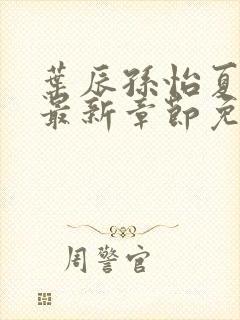 葉辰孫怡夏
最新章節免
周警官